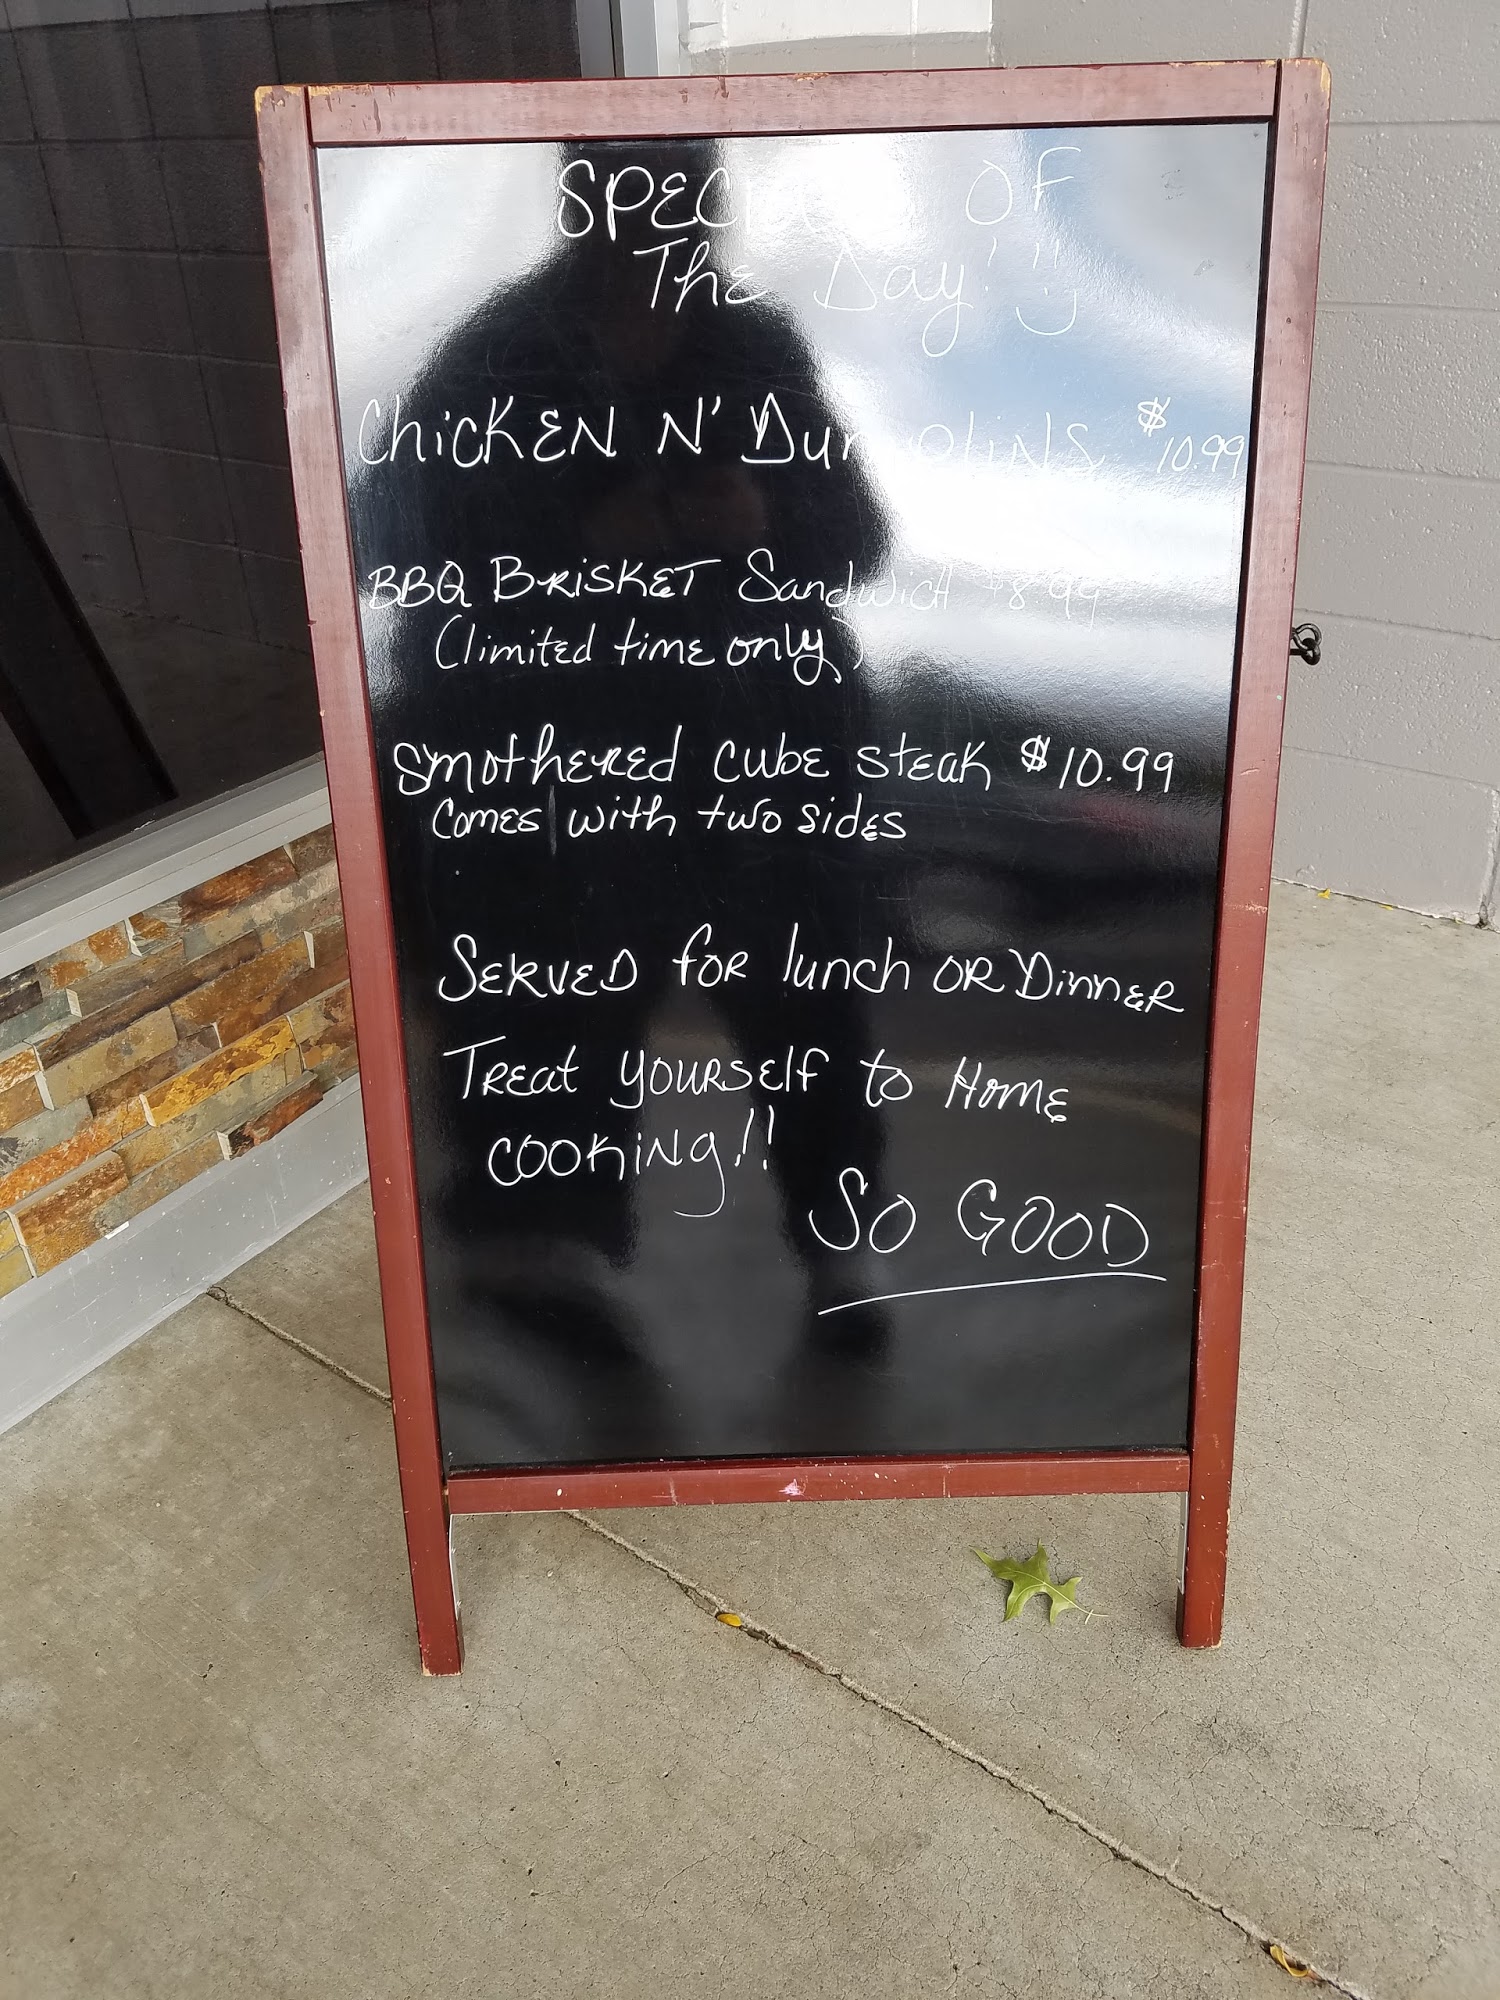 OF
The Day!!!
Chicken N' Dumplins $10.99
BBQ Brisket Sandwich $8.99
(limited time only)
Smothered cube steak $10.99
Comes with two sides
Served for lunch or Dinner
Treat yourself to Home
cooking!!
So GOOD